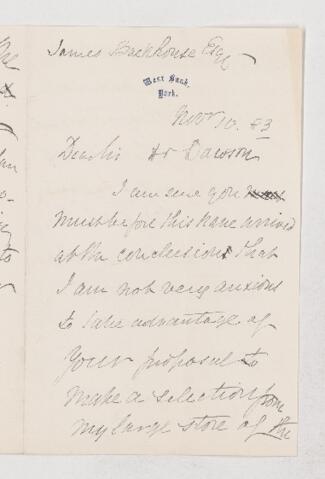 James Backhouse Esq
West Bank,
York.
Novr 10. 83
Dear Sir Dr Dawson
I am sure you
must before this have arrived
at the conclusions that
I am not very anxious
to take advantage of
your proposal to
make a selection from
my large store of the